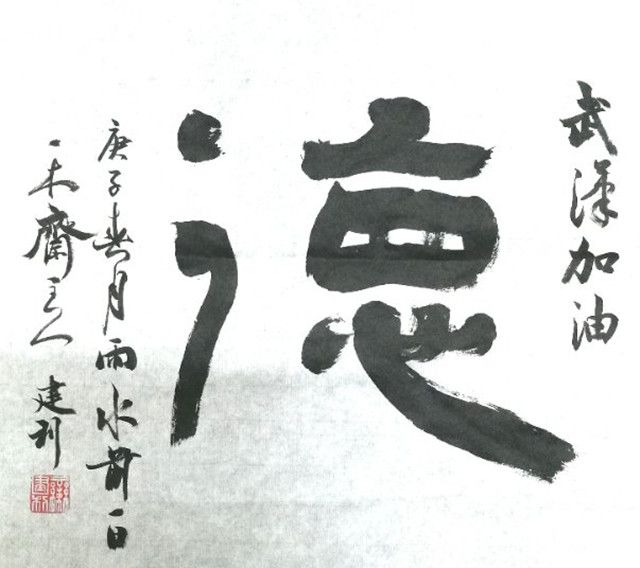 武漢加油
德
庚子春月雨水前一日
一木齋主人 建利